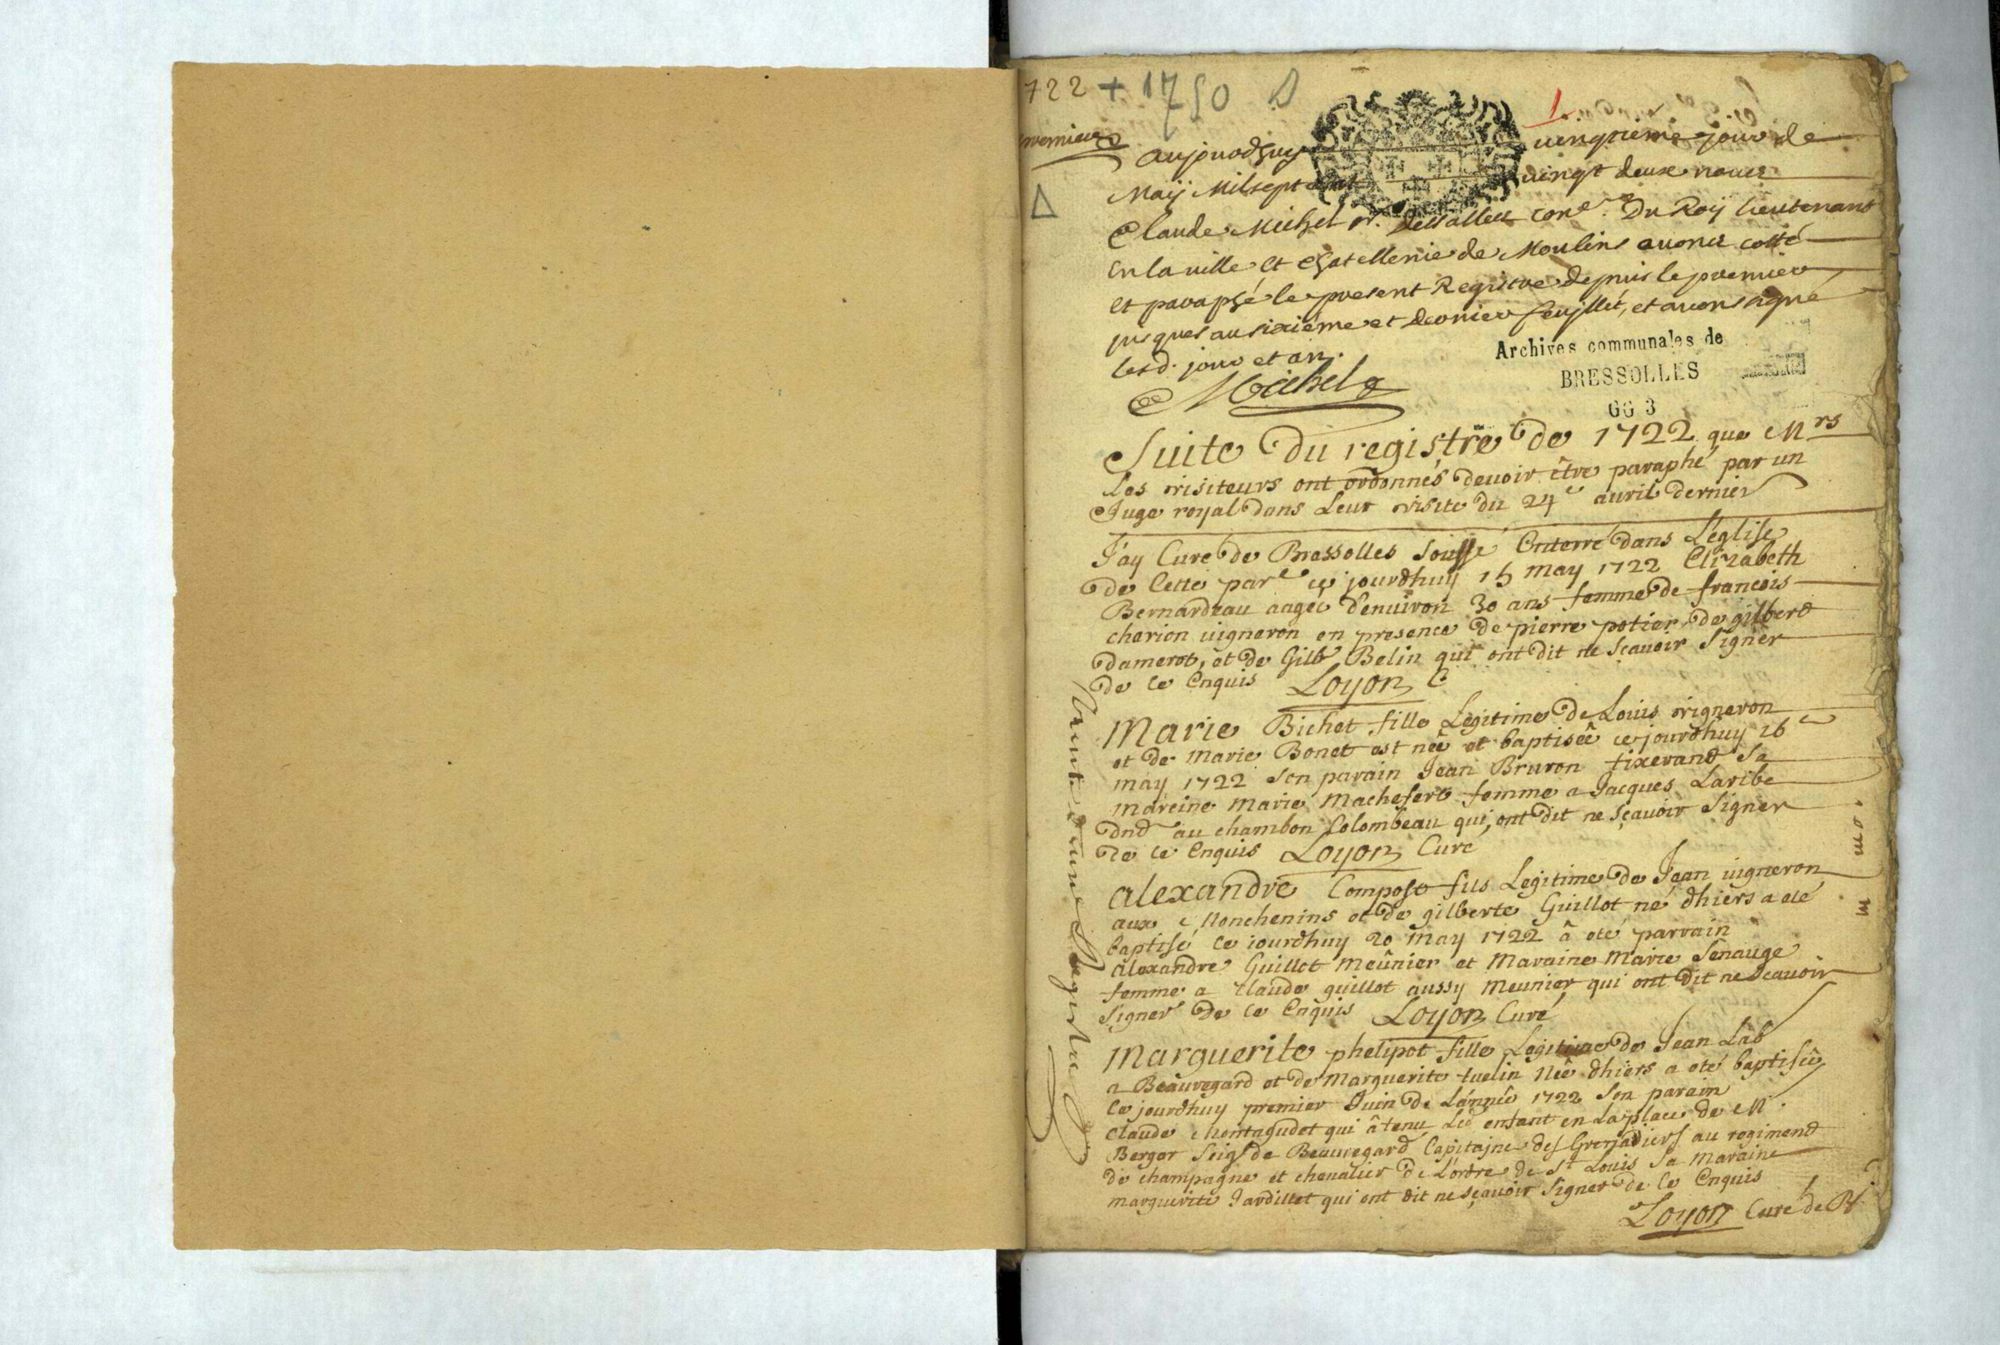 722 + 1750
1
premier
aujourdhuy vingtieme jour de
Maÿ Mil sept cent vingt deux nous
Claude Michel Sr. Dessalles Coner. Du Roÿ lieutenant
en la ville et chatellenie de Moulins avons cotté
et paraphé le present Registre depuis le premier
jusques au sixiéme et dernier feuillet, et avons signé
lesd. jour et an.
Michel
Archives communales de
BRESSOLLES
GG 3
Suite Du registre de 1722 que Mrs
Les visiteurs ont ordonnés devoir être paraphé par un
Juge royal dans Leur visite du 24e avril dernier
J'ay Curé de Bressolles Soussé Enterré dans L'église
de Cette parse ce jourdhuy 15 may 1722 Elizabeth
Bernardeau aagée d'environ 30 ans femme de francois
cherion vigneron en presence de pierre potier de gilbert
Damerot, et de Gilb Belin qui ont dit ne Sçavoir Signer
de ce Enquis Loyon C
Marie Bichet fille Legitime de Louis vigneron
et de Marie Bonet est née et baptisée ce jourdhuy 16e
may 1722 Son parain Jean Bruron tixerand Sa
mareine Marie Machefert femme a Jacques Laribe
dnd au chambon Colombeau qui ont dit ne Sçavoir Signer
de ce Enquis Loyon Curé
Alexandre Compost fils Legitime de Jean vigneron
aux Monchenins et de gilberte Guillot né dhiers a eté
baptisé ce jourdhuy 20 may 1722 â eté parrain
Alexandre Guillot Meûnier et Maraine Marie Senauge
femme a Claude guillot aussy Meunier qui ont dit ne Sçavoir
Signer de ce Enquis Loyon Curé
Marguerite phelipot fille Legitime de Jean Lab
a Beauvegard et de Marguerite tuelin Née dhiers a eté baptisée
ce jourdhuy premier Juin de L'année 1722 Son parain
Claude Montagudet qui â tenu Led enfant en La place de M.
Berger Seigr de Beauregard Capitaine des Grenadiers au regiment
de champagne et chevalier de L'ordre de St Louis Sa Maraine
marguerite Jardillet qui ont dit ne Sçavoir Signer de ce Enquis
Loyon Curé de B